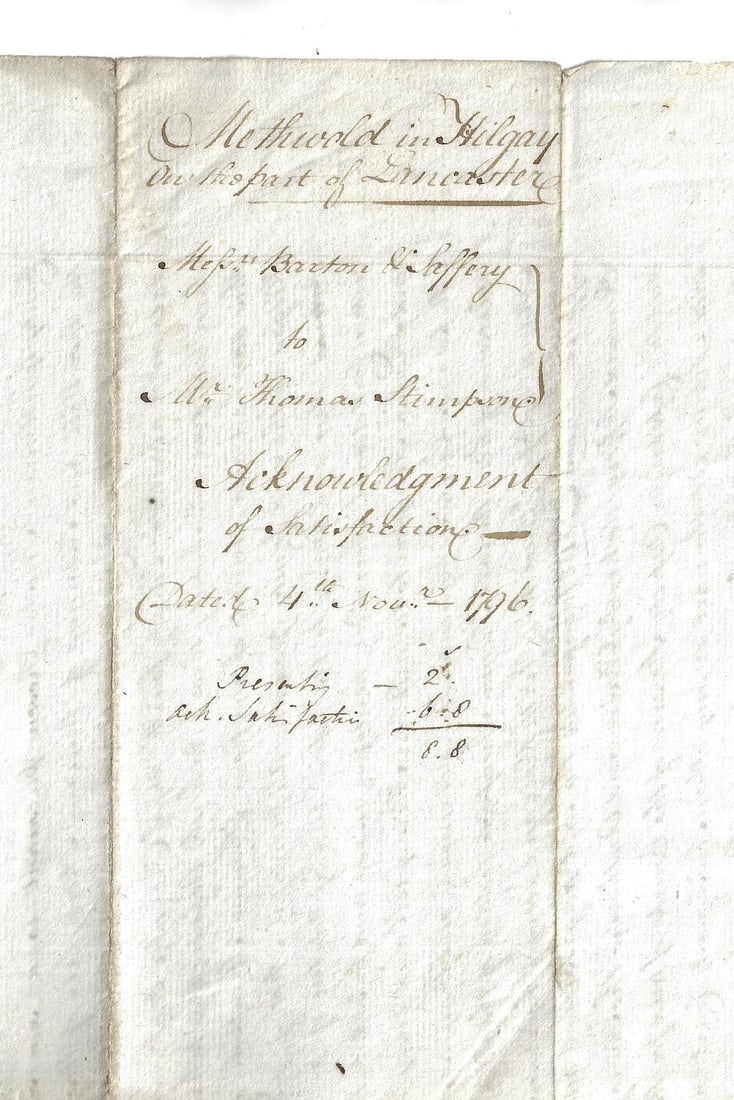 Methwold in Hilgay
On the part of Lancaster
Messrs. Barton & Saffery
to
Mr. Thomas Stimpson
Acknowledgment
of Satisfaction —
Dated 4th. Novr. — 1796.
Presentg — 2s.
Ack. Satisfactn 6.8
8.8